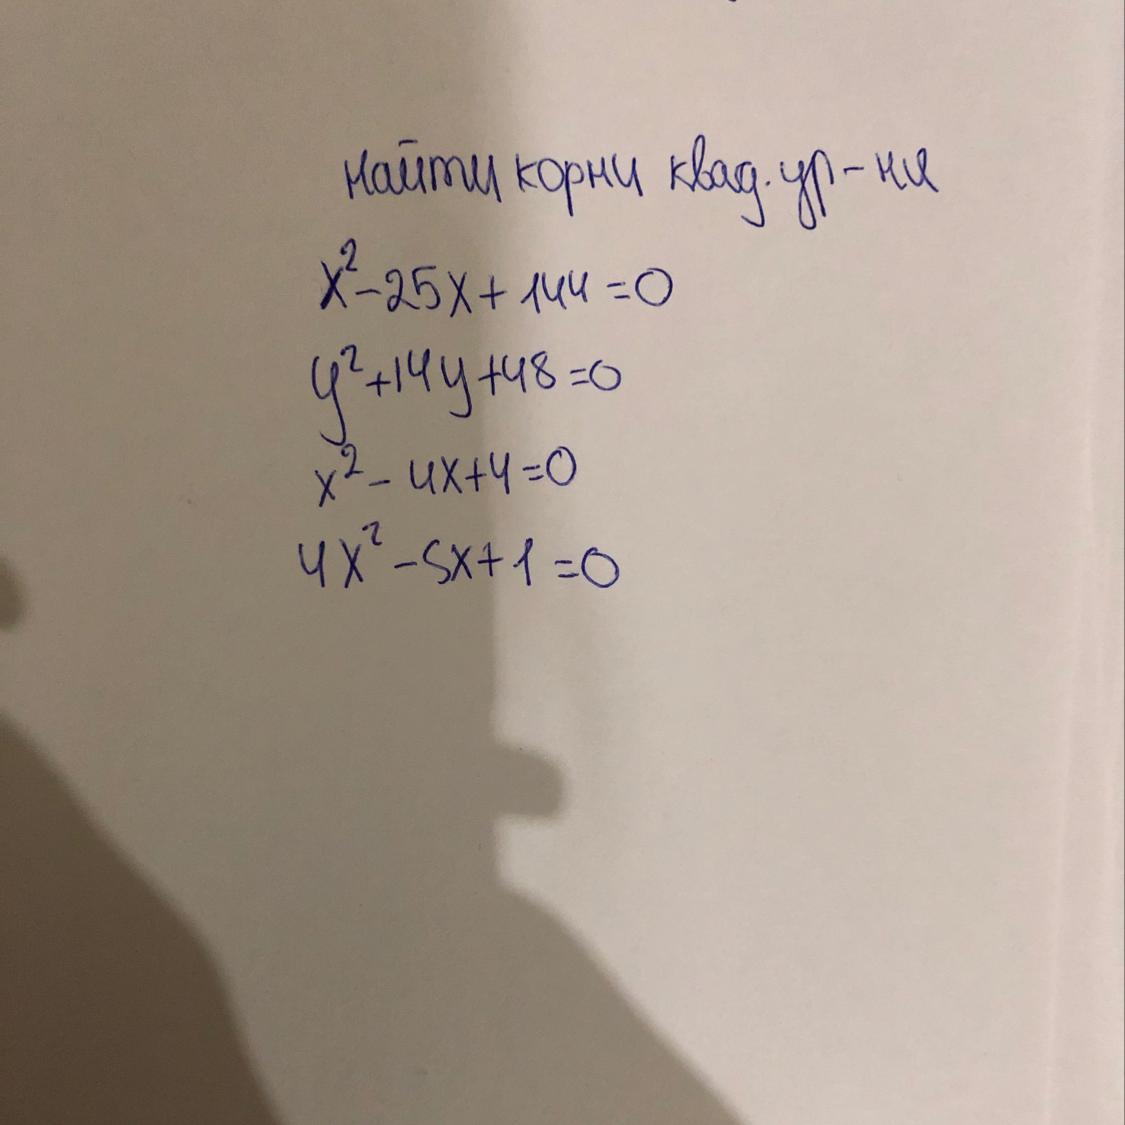 найти корни квад. ур-ния
x²-25x+144=0
y²+14y+48=0
x²-4x+4=0
4x²-5x+1=0